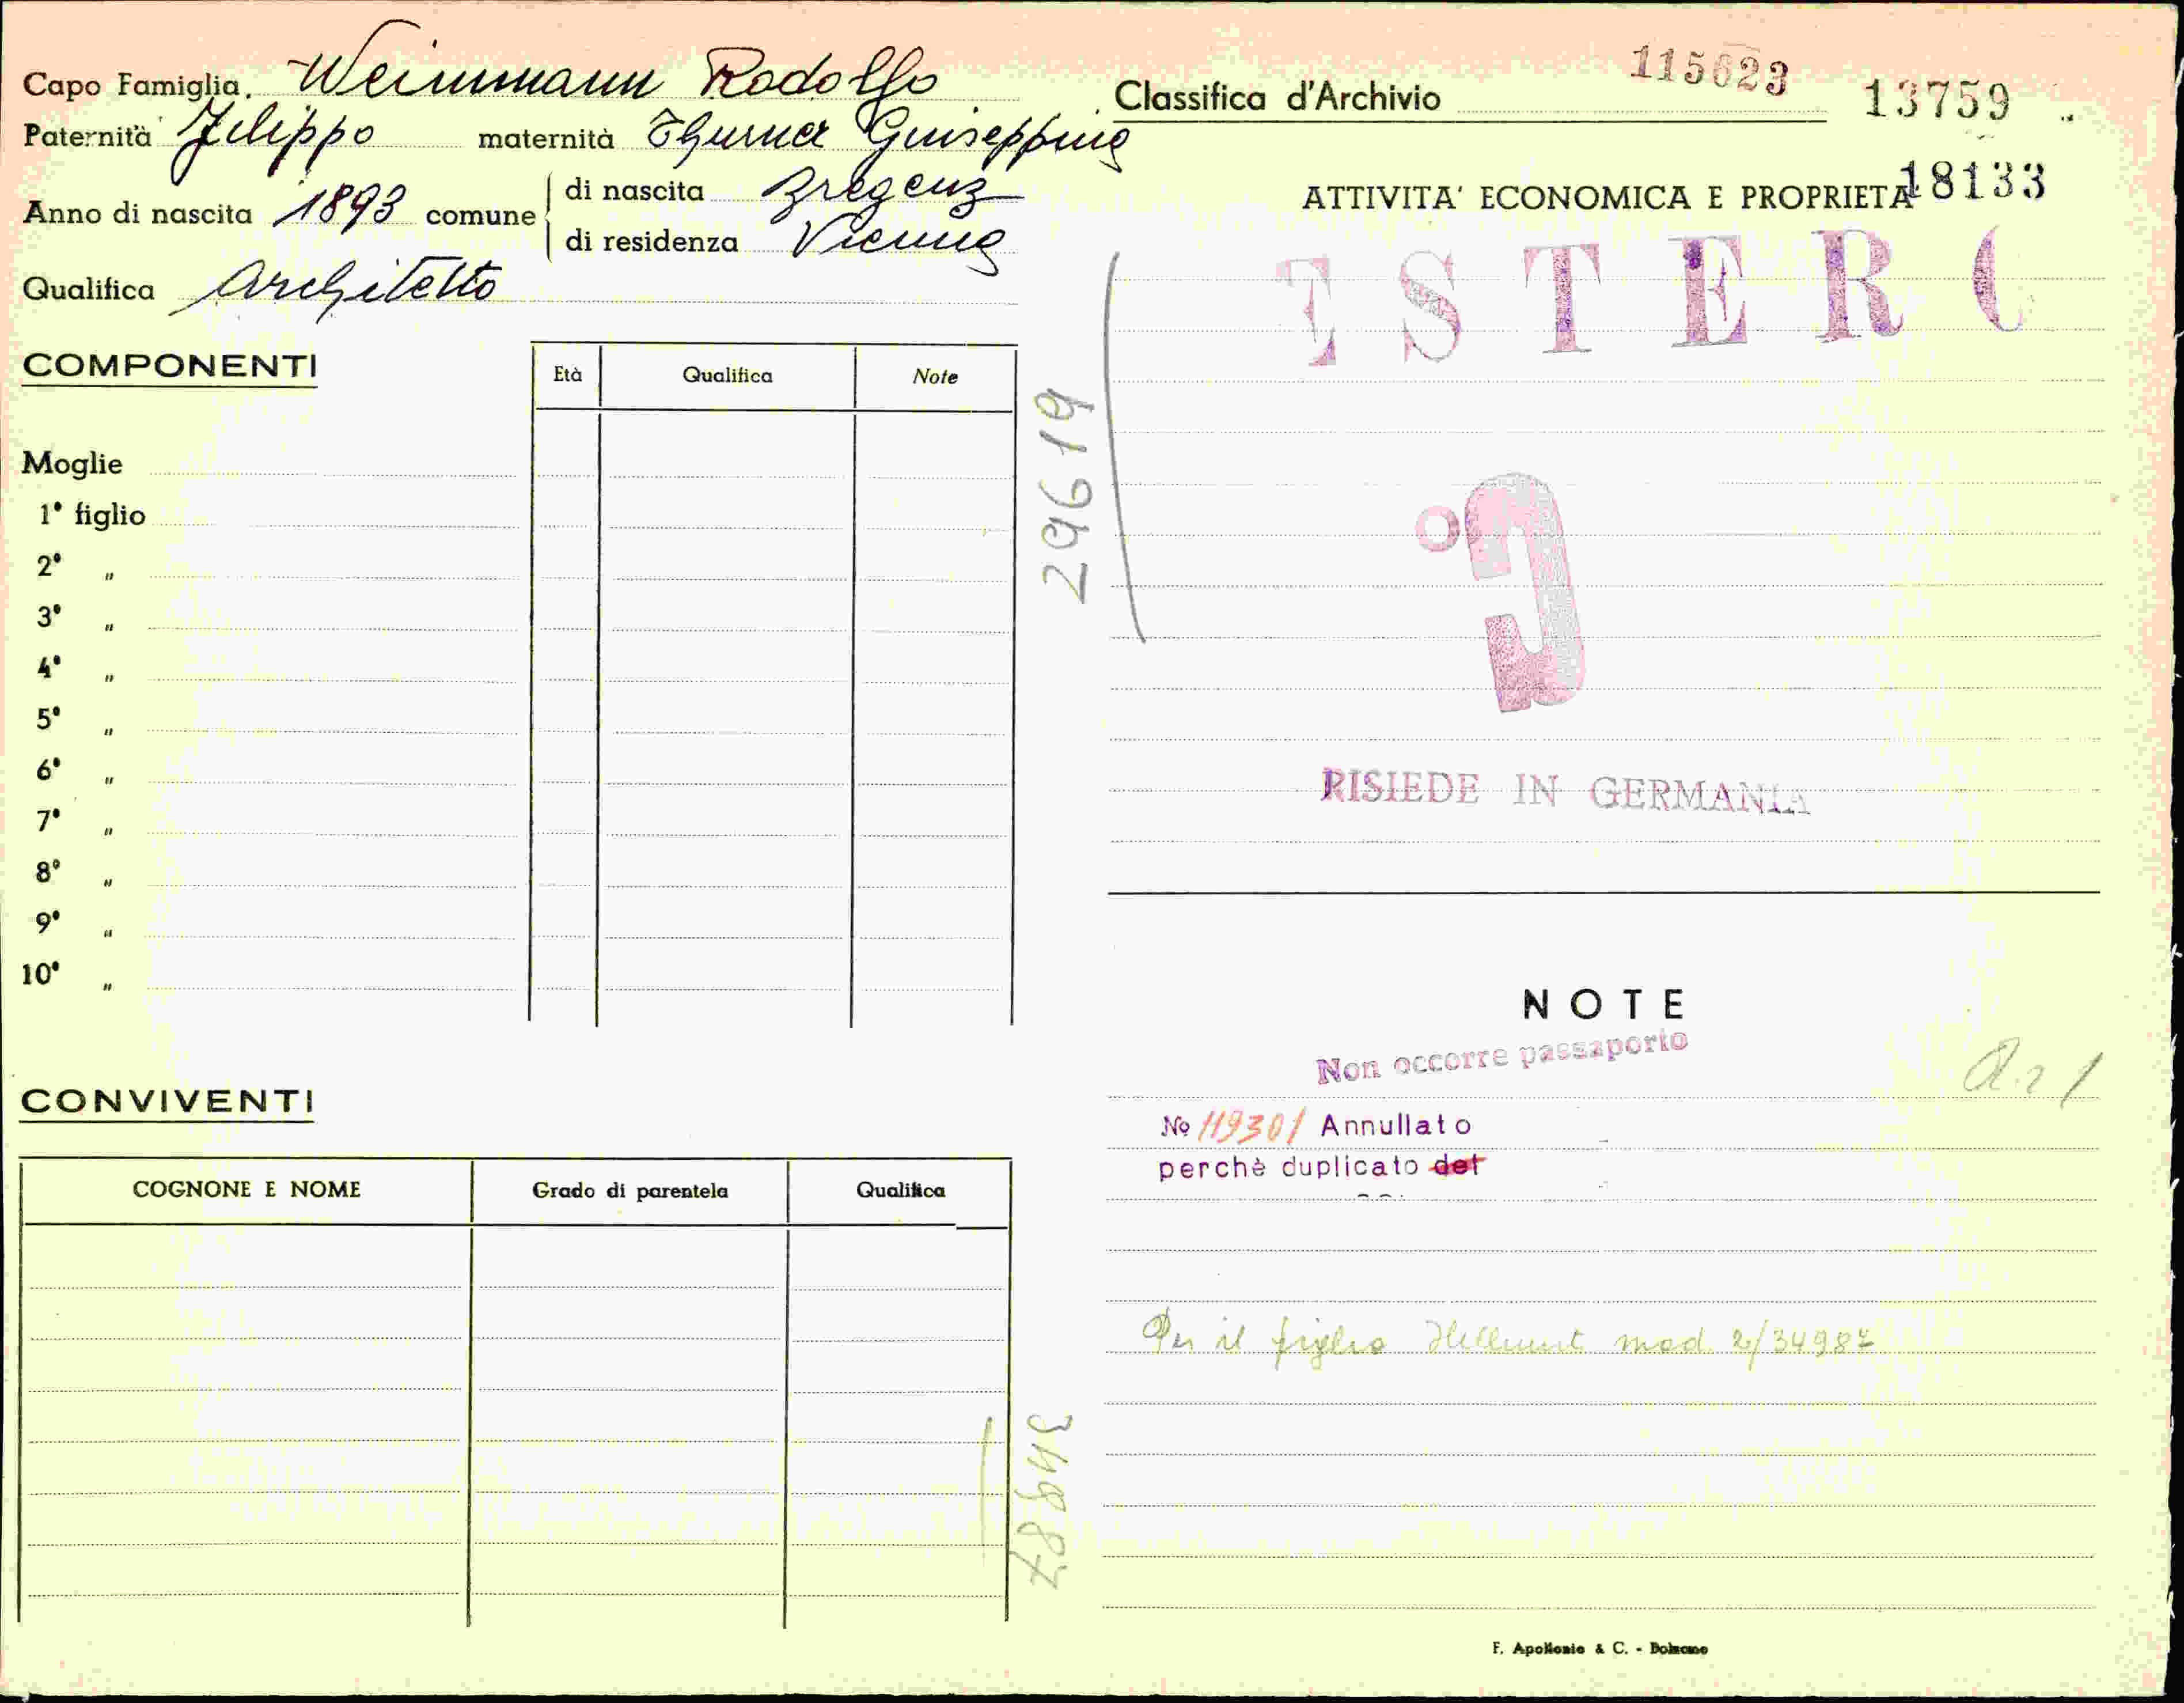 Capo Famiglia. Weinmann Rodolfo
Paternità Filippo maternità Thurner Guiseppina
Anno di nascita 1893 comune di nascita Bregenz
di residenza Vienna
Qualifica Architetto
COMPONENTI
Età Qualifica Note
Moglie
1° figlio
2° "
3° "
4° "
5° "
6° "
7° "
8° "
9° "
10° "
29619
CONVIVENTI
COGNONE E NOME Grado di parentela Qualifica
34987
Classifica d'Archivio 115623 13759
ATTIVITA' ECONOMICA E PROPRIETA' 18133
ESTERO
RISIEDE IN GERMANIA
NOTE
Non occorre passaporto
No 119301 Annullato
perchè duplicato del
Per il figlio Hellmut mod. 2/34987
F. Apollonio & C. - Bolzano